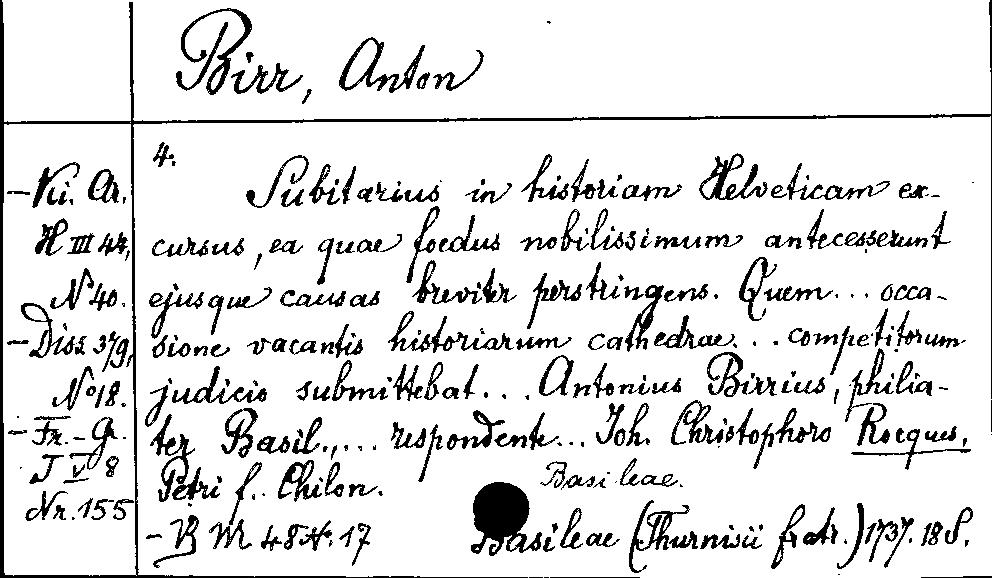 Birr, Anton
4.
Subitarius in historiam Helveticam ex-
cursus, ea quae foedus nobilissimum antecesserunt
ejusque causas breviter perstringens. Quem... occa-
sione vacantis historiarum cathedrae... competitorum
judicio submittebat... Antonius Birrius, philia-
ter Basil.,... respondente... Joh. Christophoro Rocques,
Petri f. Chilon.
Basileae.
Basileae (Thurnisii fratr.) 1737. 18 S.
- Ki. Ar.
H III 44,
N° 40.
- Diss 379,
N° 18.
- Fr.-Gr.
J V 8
Nr. 155
- VB M 48 N. 17